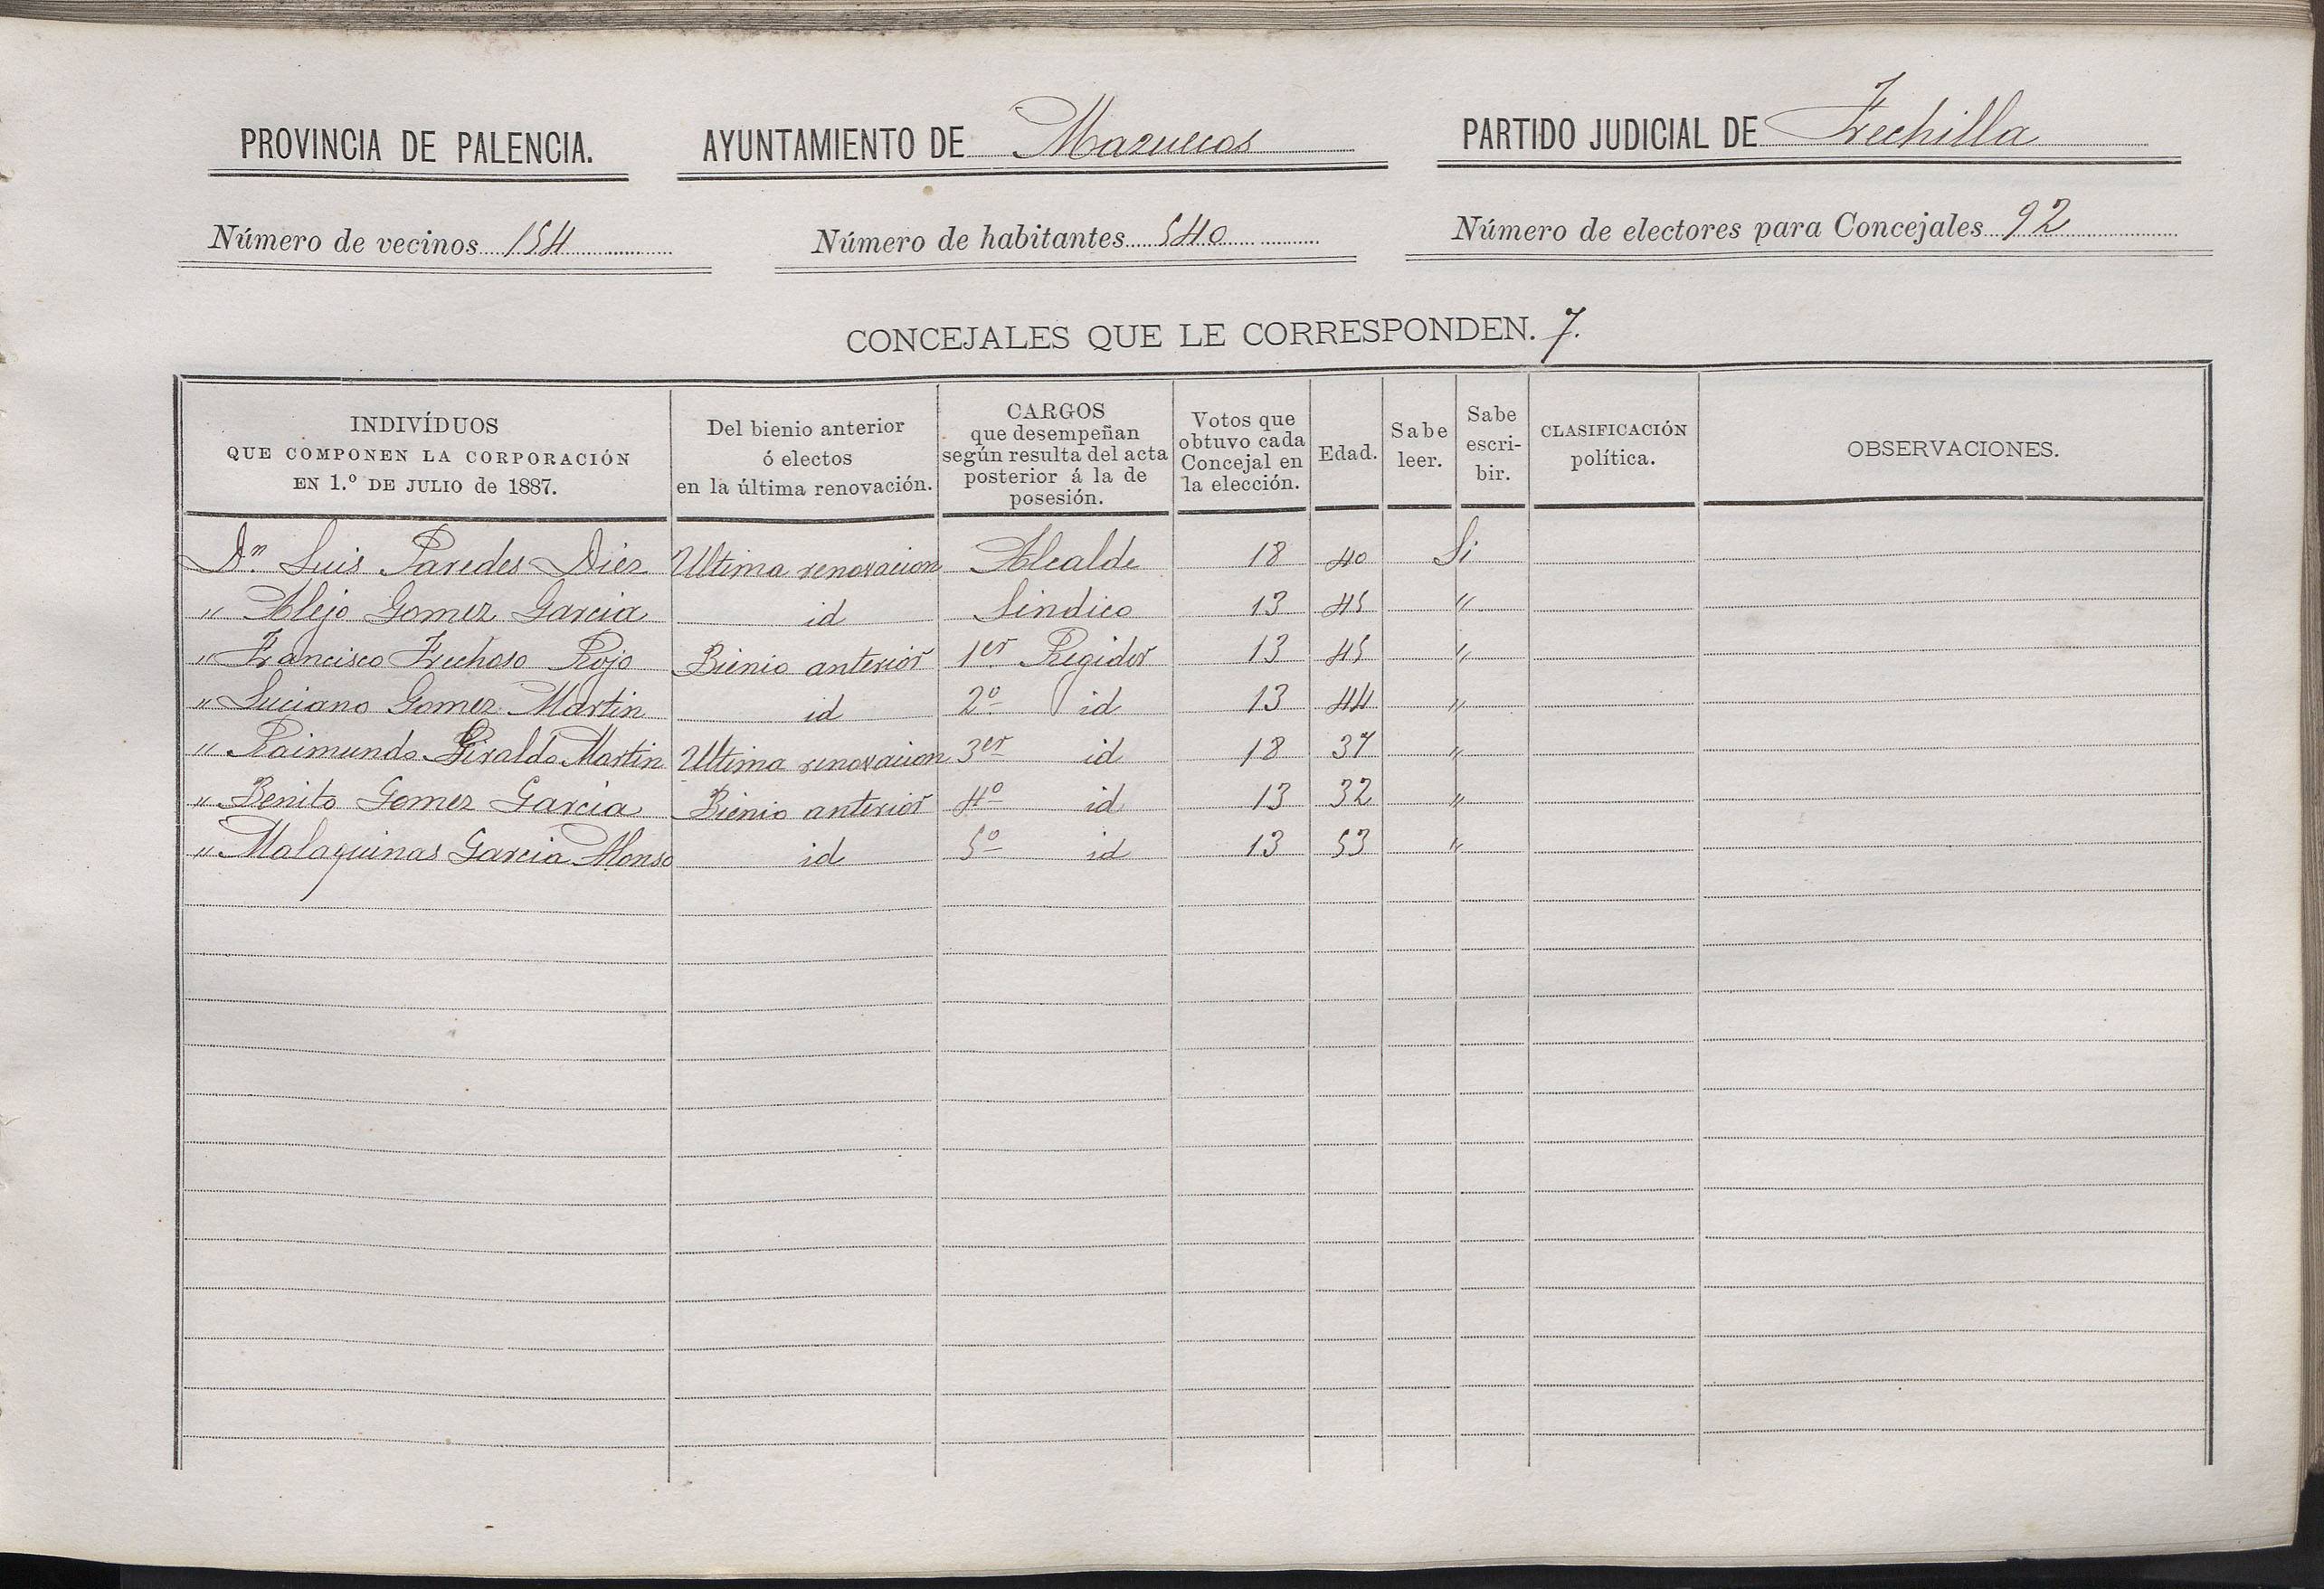 PROVINCIA DE PALENCIA. AYUNTAMIENTO DE Mazuecos PARTIDO JUDICIAL DE Frechilla
Número de vecinos 154 Número de habitantes 540 Número de electores para Concejales 92
CONCEJALES QUE LE CORRESPONDEN. 7.
INDIVÍDUOS
QUE COMPONEN LA CORPORACIÓN
EN 1.º DE JULIO de 1887.
Del bienio anterior
ó electos
en la última renovación.
CARGOS
que desempeñan
según resulta del acta
posterior á la de
posesión.
Votos que
obtuvo cada
Concejal en
la elección.
Edad.
Sabe
leer.
Sabe
escri-
bir.
CLASIFICACIÓN
política.
OBSERVACIONES.
Dn Luis Paredes Diez Ultima renovacion Alcalde 18 40 Si
" Alejo Gomez Garcia id Sindico 13 45 "
" Francisco Frechoso Rojo Bienio anterior 1er Regidor 13 45 "
" Luciano Gomez Martin id 2º id 13 44 "
" Raimundo Giraldo Martin Ultima renovacion 3er id 18 37 "
" Benito Gomez Garcia Bienio anterior 4º id 13 32 "
" Malaquinas Garcia Alonso id 5º id 13 53 "